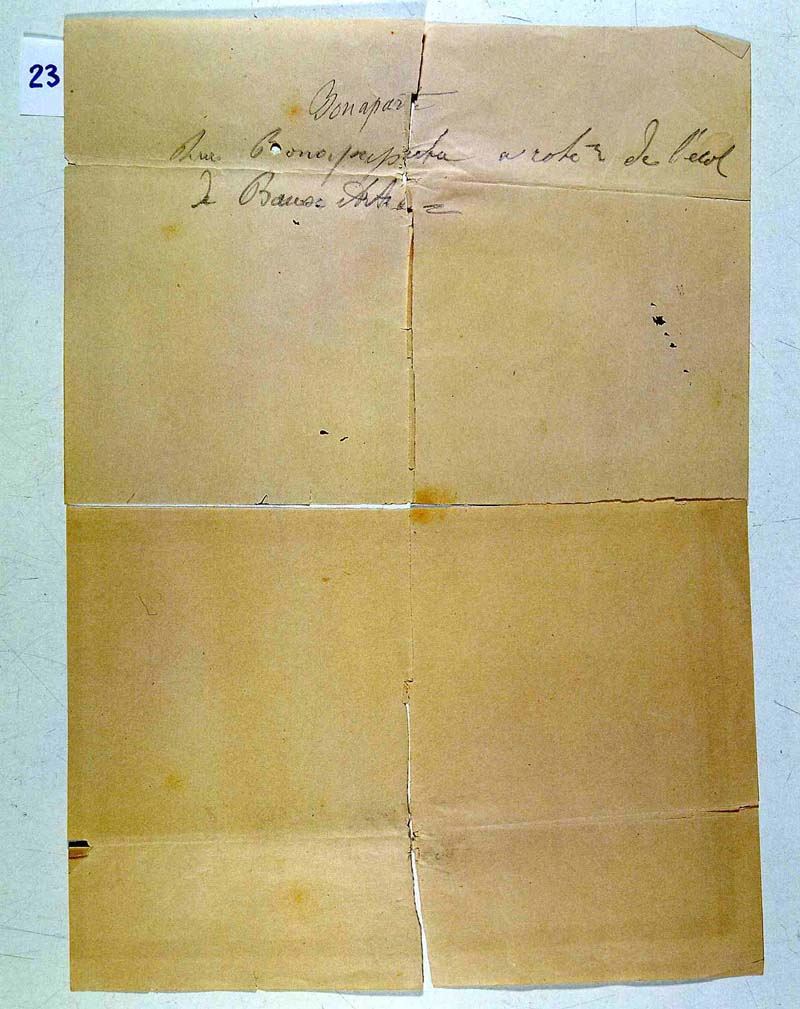 23
Bonaparte
Rue Bonapaparta a coté de l'écol
de Baux Arts